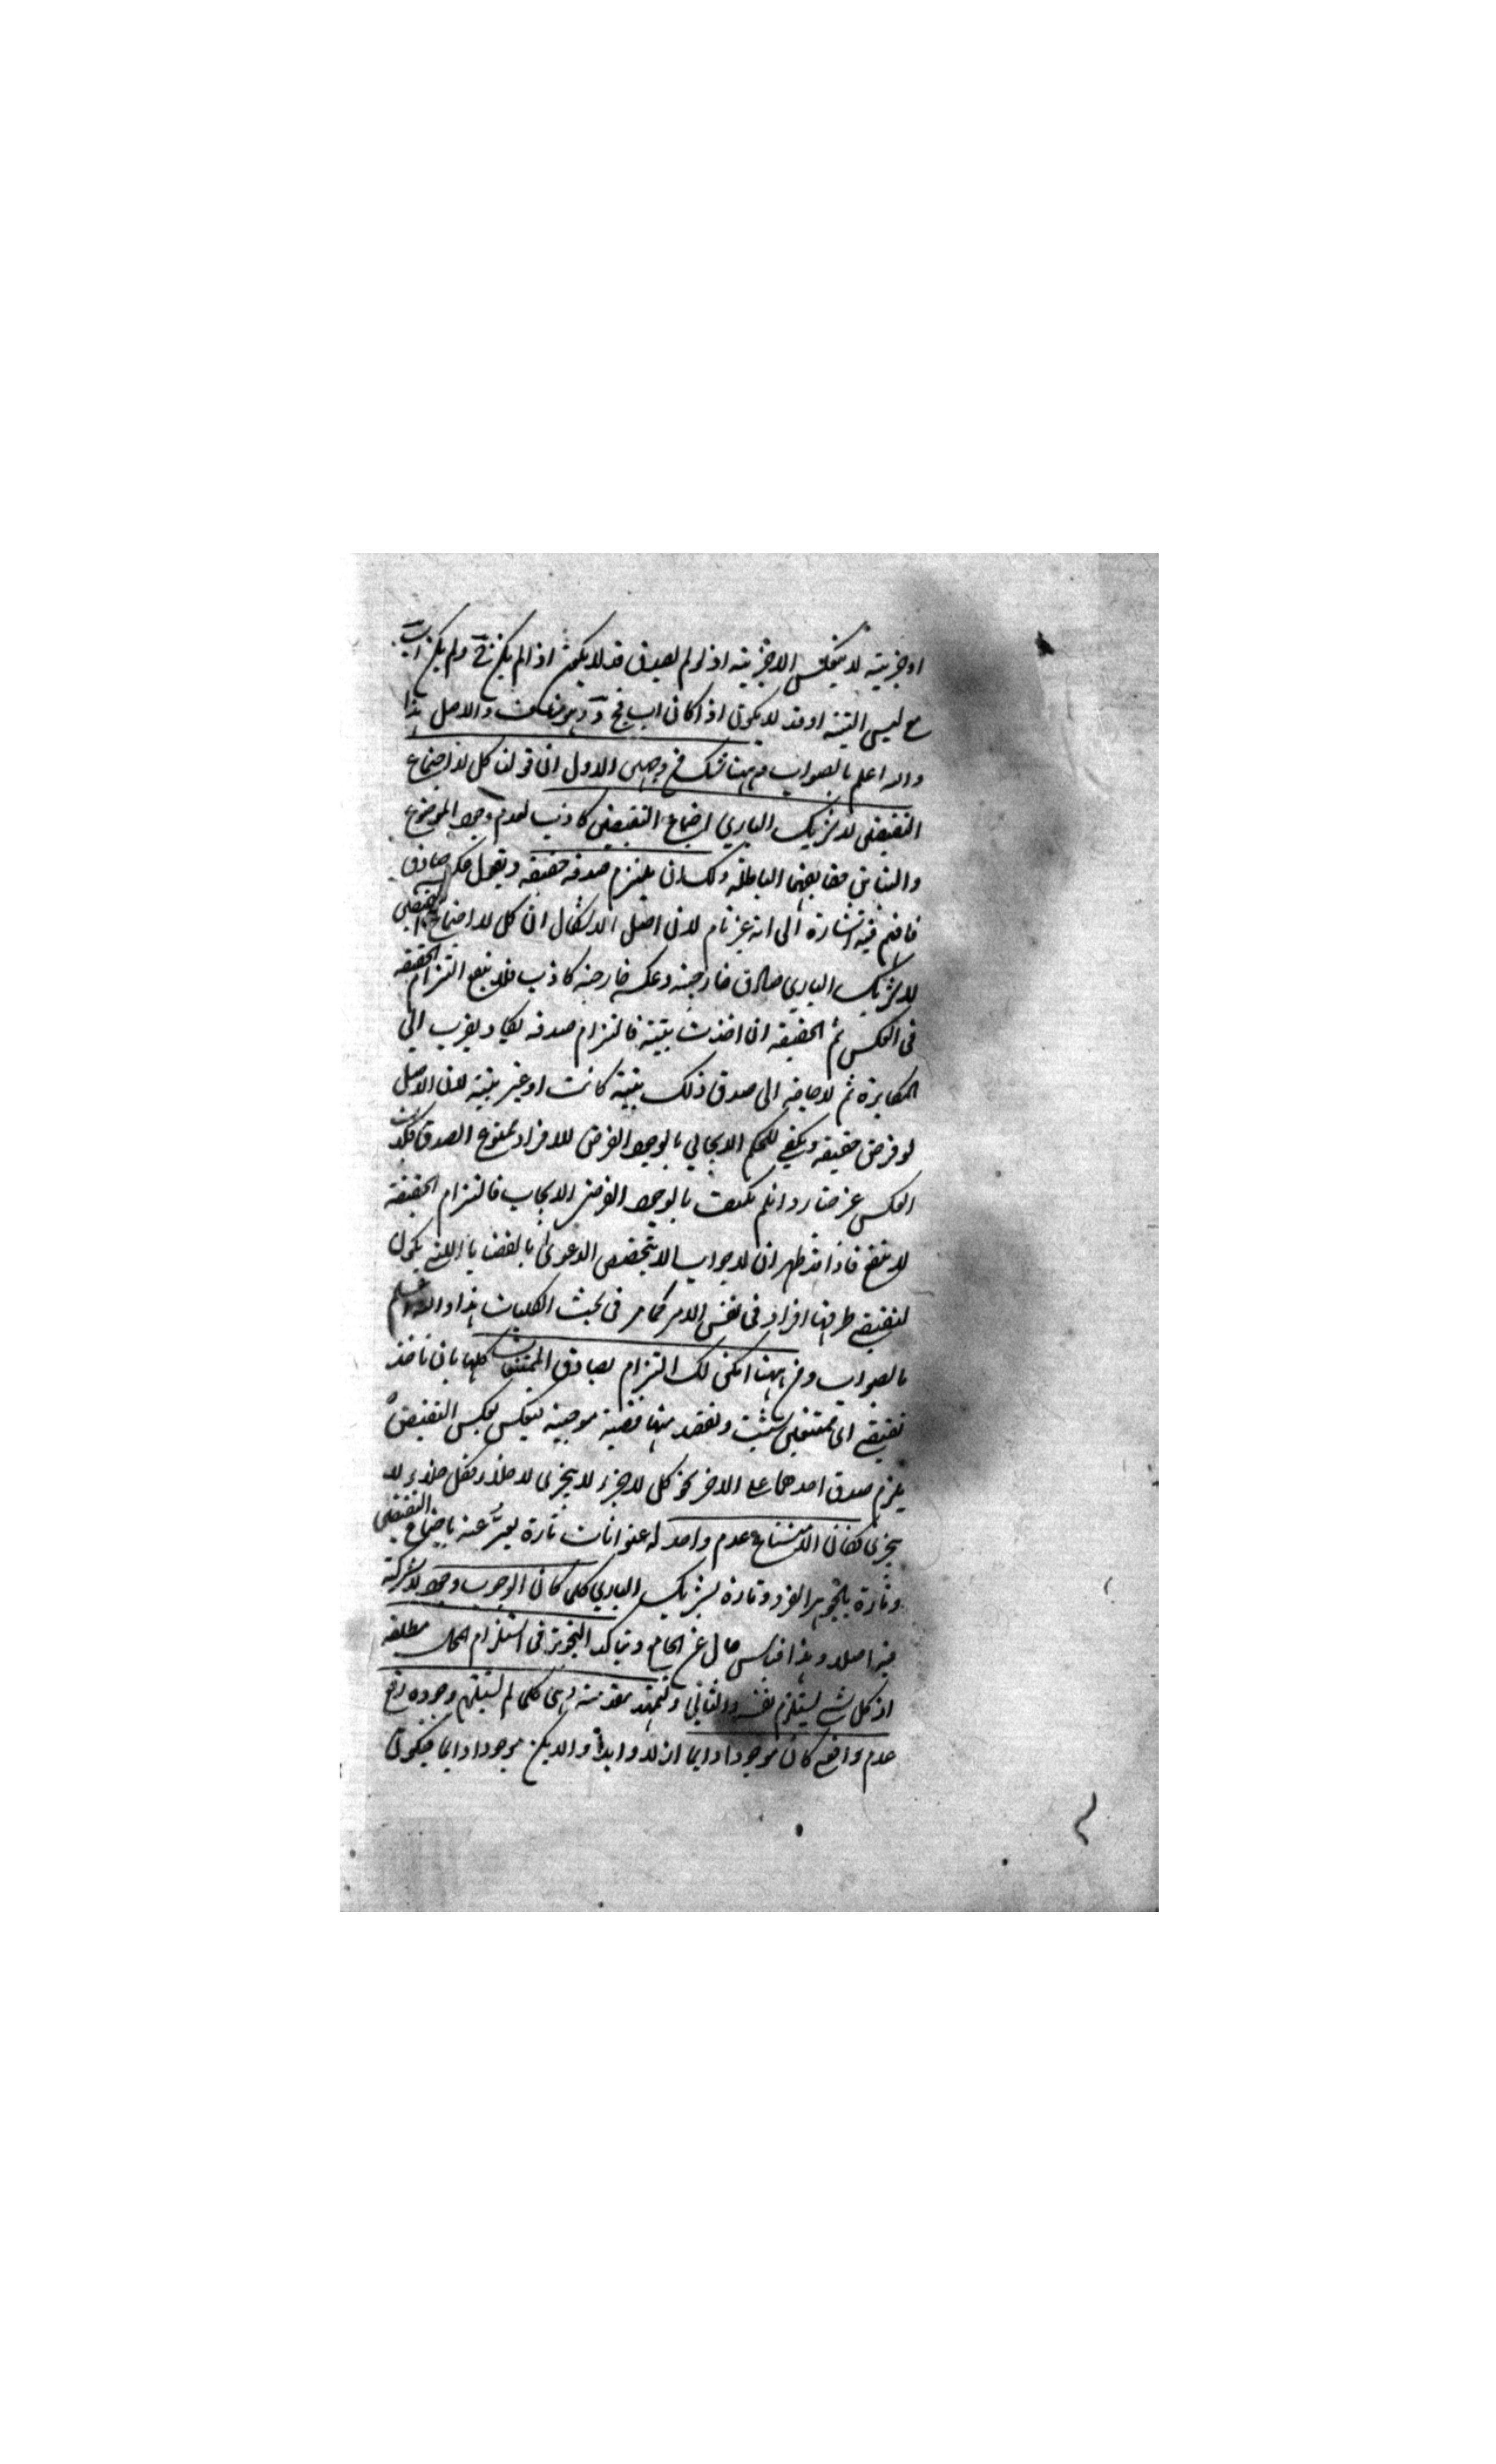 او جزئية لا ينعكس الا جزئية اذ لو لم يصدق قد لا يكون اذا لم يكن ج د لم يكن اب
مع ليس البتة او قد لا يكون اذا كان اب فج د وهو مناقض والاصل هذا
والله اعلم بالصواب وههنا شك من وجهين الاول ان قولنا كل لا اجتماع
النقيضين لا شريك الباري اجتماع النقيضين كاذب لعدم وجود الموضوع
ولك ان يلتزم صدقه حقيقة
فافهم فيه اشارة الى انه غير تام لان اصل الاشكال ان كل لا اجتماع النقيضين
لا شريك الباري صادق خارجية وعكسه خارجية كاذب فلا ينفع التزام الحقيقة
في العكس ثم الحقيقة ان اخذت بتية فالتزام صدقه يكاد يقرب الى
المكابرة ثم لا حاجة الى صدق ذلك بتية كانت او غير بتية لان الاصل
لو فرض حقيقة ويكفي للحكم الايجابي بالوجود الفرضي للافراد ممنوع الصدق فكذب
العكس غير ضار وان لم يكتف بالوجود الفرضي الايجاب فالتزام الحقيقة
لا ينفع فاذا قد ظهر ان لا جواب الا بتخصيص الدعوى بالقضايا اللتي يكون
لنقيضي طرفيها افراد في نفس الامر كما مر في بحث الكليات هذا والله اعلم
بالصواب ومن ههنا امكن لك التزام تصادق الممتنعات كلها بان تاخذ
نقيضي اي ممتنعين شئت وتعقد منها قضية موجبة تنعكس بعكس النقيض
يلزم صدق احدهما على الاخر نحو كل لا جزء لا يتجزى لا خلاء فكل خلاء لا
يتجزى فكان الامتناع عدم واحد له عنوانات تارة يعبر عنه باجتماع النقيضين
وتارة بالجوهر الفرد وتارة بشريك الباري كما كان الوجوب وجود لا شركة
فيه اصلا وهذا قياس خال عن الجامع ويتاكد التجويز في استلزام المحال مطلقه
اذ كل شيء يستلزم نفسه والثاني ولنمهد مقدمة وهي كلما لم يستلزم وجوده رفع
عدم واقعي كان موجودا دايما ازلا وابدا والا لم يكن موجودا دايما فيكون